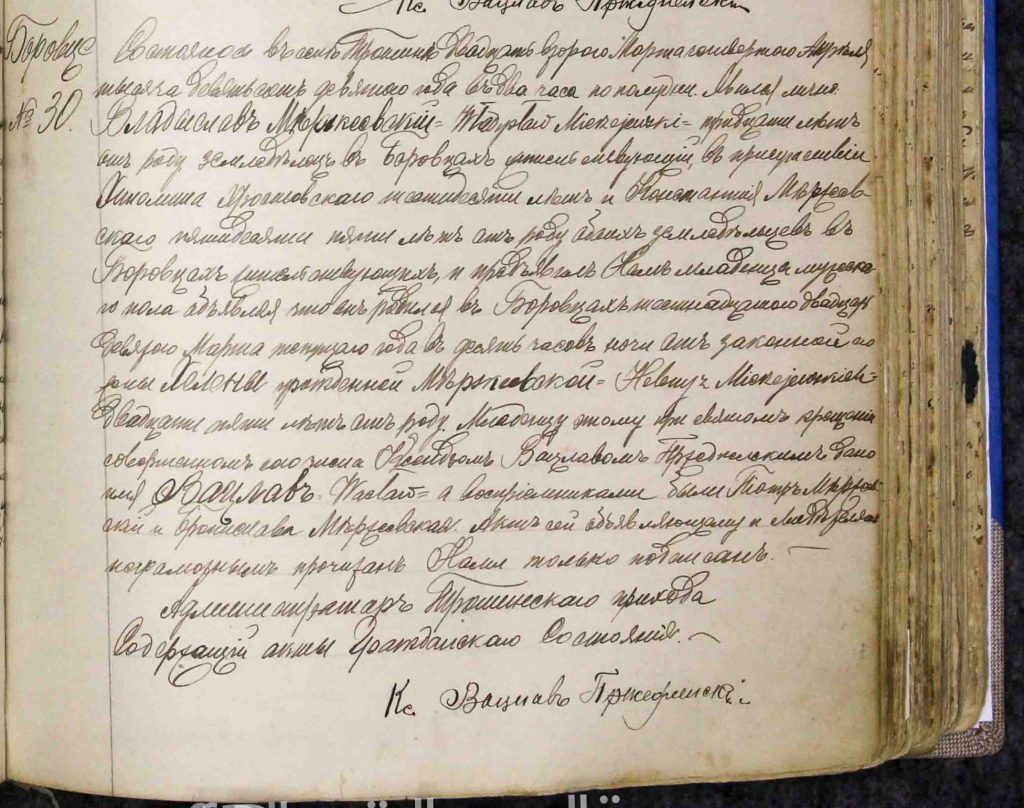 Кс. Вацлавъ Пржедпелскій
Боровце
№ 30.
Состоялось въ селѣ двадцать второго Марта четвертаго Апрѣля
тысяча девятьсотъ девятаго года въ два часа пополудни. Явился лично
Владиславъ Мѣржеевскій = = тридцати лѣтъ
отъ роду земледѣлецъ въ Боровцахъ жительствующій, въ присутствіи
шестидесяти лѣтъ и Константія Мѣржеев
скаго пятидесяти пяти лѣтъ отъ роду обоихъ земледѣльцевъ въ
Боровцахъ жительствующихъ, и предъявилъ Намъ младенца мужска
го пола объявляя что онъ родился въ Боровцахъ шестнадцатого двадцать
девятого Марта текущаго года въ десять часовъ ночи отъ законной его
жены урожденной Мѣржеевской =
двадцати пяти лѣтъ отъ роду. Младенцу этому при святомъ крещеніи
совершенномъ сего числа Ксендзомъ Вацлавомъ Пржедпелскимъ дано
имя Вацлавъ = Wacław = а воспріемниками были Петръ Мѣржеев
скій и Бронислава Мѣржеевская. Актъ сей объявляющему и свидѣтелямъ
неграмотнымъ прочитанъ Нами только подписанъ. —
Администраторъ прихода
Содержащій акты Гражданскаго Состоянія. —
Кс. Вацлавъ Пржедпелскій